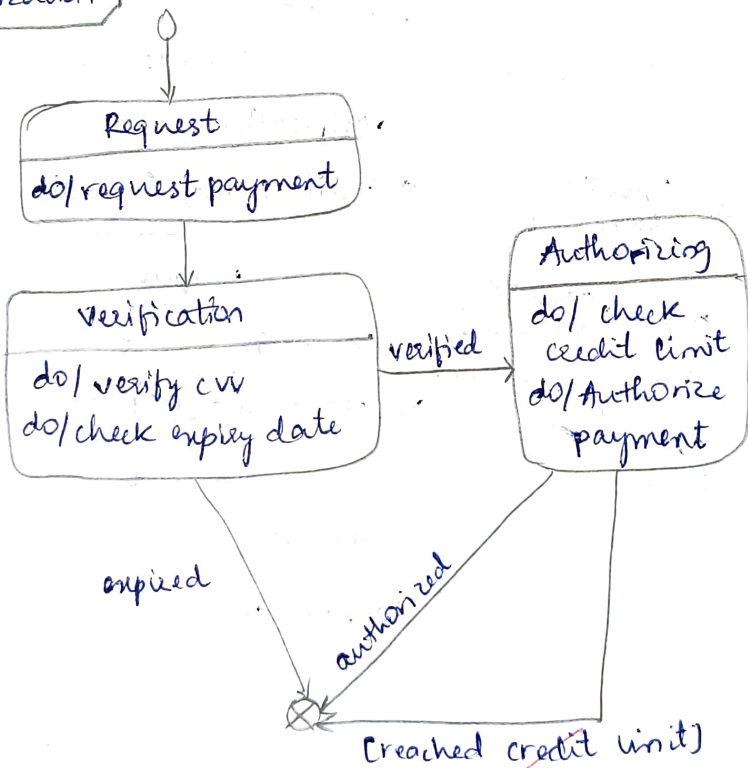 Request
do/request payment
Verification
do/ verify cvv
do/check expiry date
verified
Authorizing
do/ check
credit limit
do/Authorize
payment
expired
authorized
[reached credit limit]